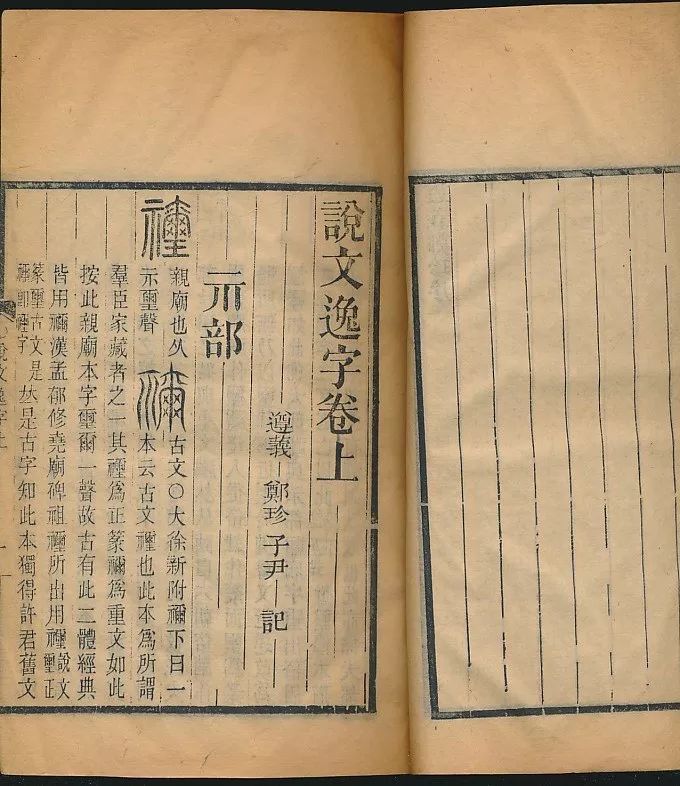 說文逸字卷上
遵義鄭珍子尹記
示部
𥜬 親廟也从示璽聲 禰 古文○大徐新附禰下曰一
本云古文𥜬也此本爲所謂
羣臣家藏者之一其𥜬爲正篆禰爲重文如此
按此親廟本字璽爾一聲故古有此二體經典
皆用禰漢孟郁修堯廟碑祖𥜬所出用𥜬說文璽正
篆璽古文是𥜬卽禰字是古字知此本獨得許君舊文
文逸字上